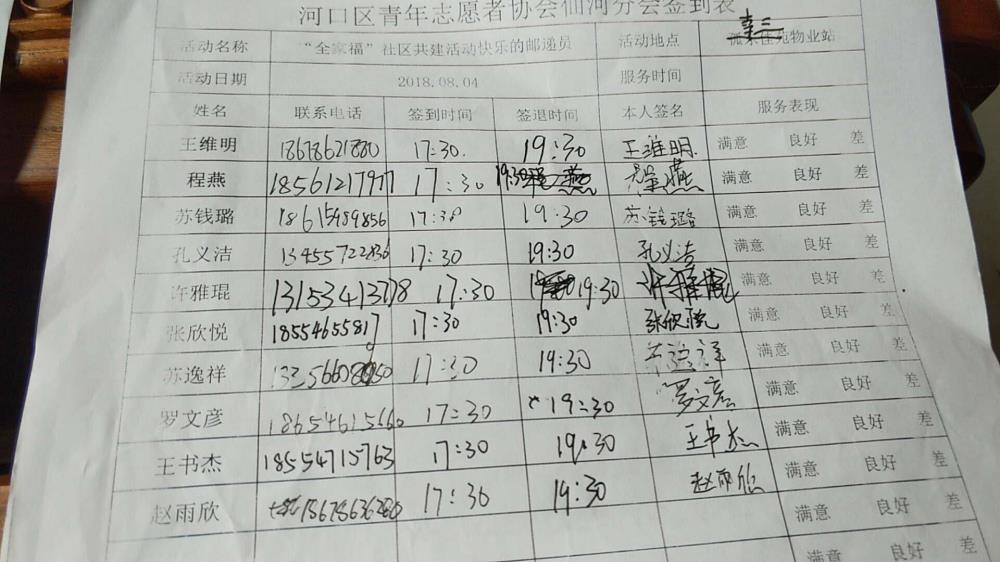 河口区青年志愿者协会仙河分会签到表
活动名称 “全家福”社区共建活动快乐的邮递员 活动地点 物业站
活动日期 2018.08.04 服务时间
姓名 联系电话 签到时间 签退时间 本人签名 服务表现
王维明 18678621880 17:30. 19:30 王维明. 满意 良好 差
程燕 18561217977 17:30 19:30 程燕 满意 良好 差
苏钱璐 18615989856 17:30 19:30 苏钱璐 满意 良好 差
孔义洁 13455722836 17:30 19:30 孔义洁 满意 良好 差
许雅琨 17:30 19:30 许雅琨 满意 良好 差
张欣悦 17:30 19:30 张欣悦 满意 良好 差
苏逸祥 17:30 19:30 苏逸祥 满意 良好 差
罗文彦 17:30 19:30 罗文彦 满意 良好 差
王书杰 18554715763 17:30 19:30 王书杰 满意 良好 差
赵雨欣 17:30 19:30 赵雨欣 满意 良好 差
满意 良好 差